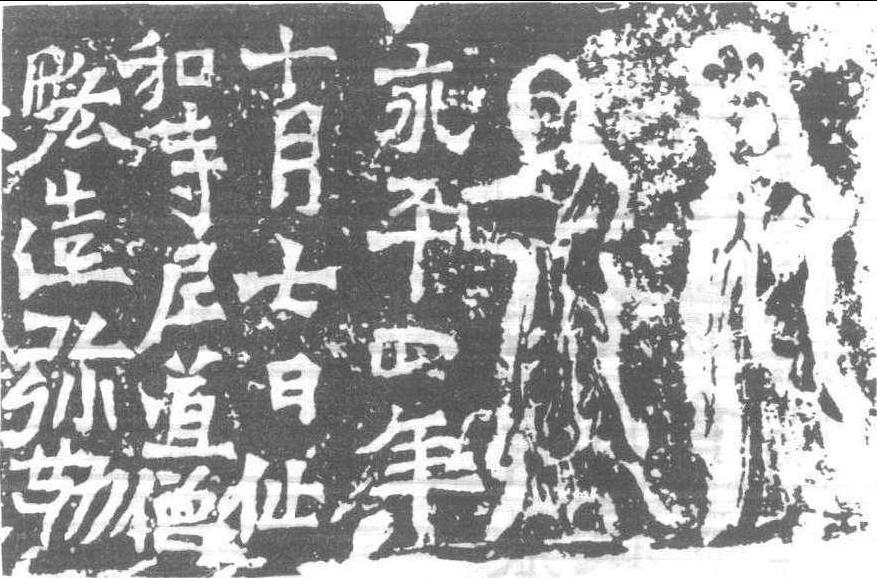 永平四年
十月七日仙
和寺尼道僧
略造弥勒